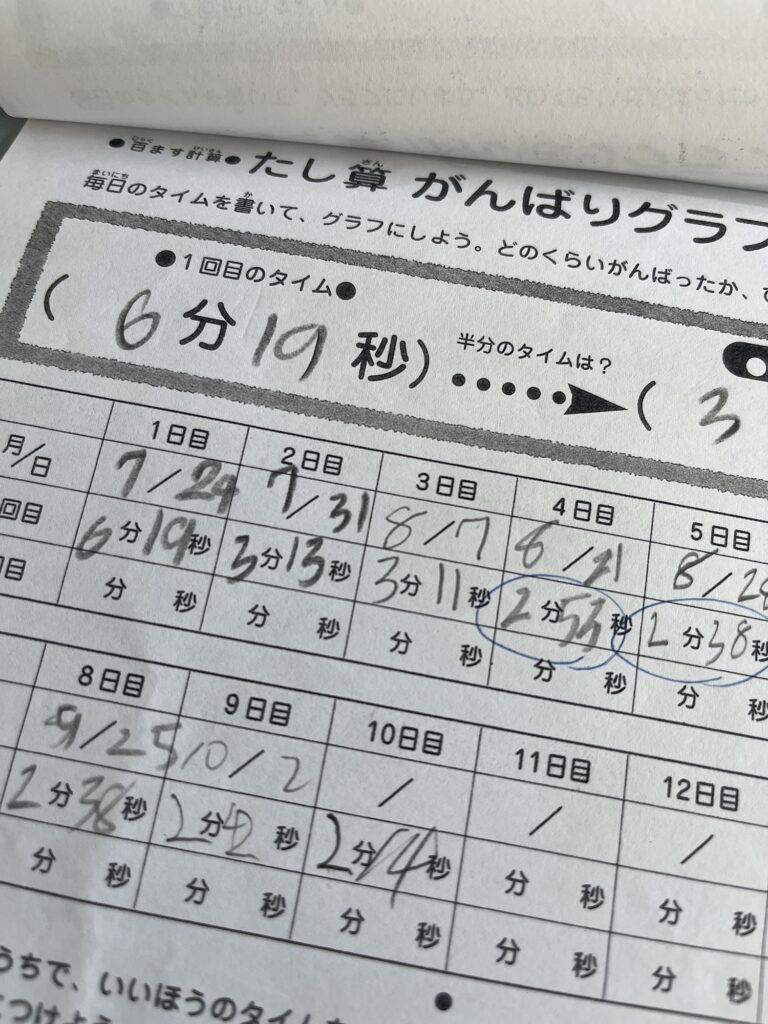 ●百ます計算● たし算 がんばりグラフ
毎日のタイムを書いて、グラフにしよう。どのくらいがんばったか、
●1回目のタイム●
(6分19秒) 半分のタイムは? (3
1日目 2日目 3日目 4日目 5日目
月/日 7/24 7/31 8/7 8/21 8/28
回目 6分19秒 3分13秒 3分11秒 2分53秒 2分38秒
回目 分 秒 分 秒 分 秒 分 秒 分 秒
8日目 9日目 10日目 11日目 12日目
9/25 10/2 / / /
2分38秒 2分42秒 2分14秒 分 秒 分 秒
分 秒 分 秒 分 秒 分 秒 分 秒
うちで、いいほうのタイムを
つけよう